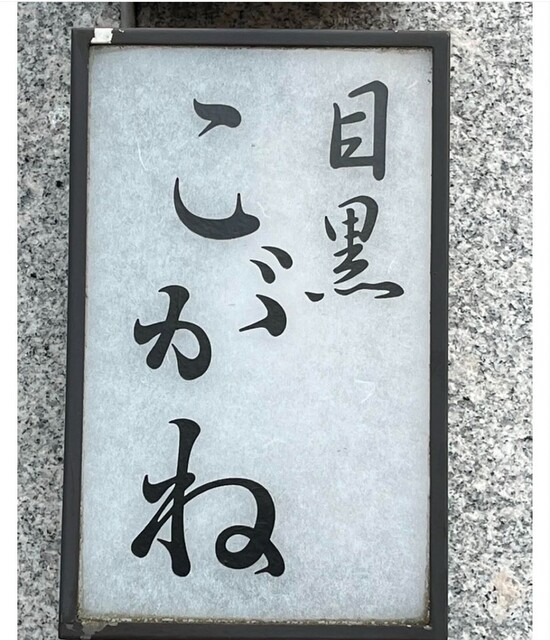 目黒
こがね